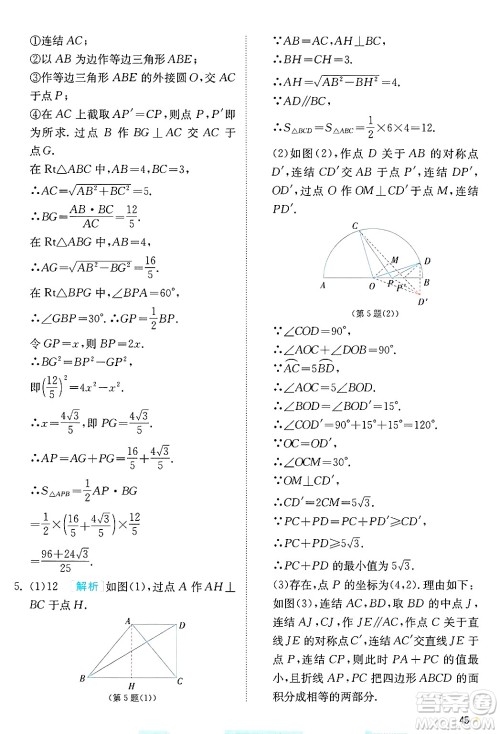 ①连结 AC;
②以 AB 为边作等边三角形 ABE;
③作等边三角形 ABE 的外接圆 O,交 AC 于点 P;
④在 AC 上截取 AP′=CP,则点 P,P′即为所求. 过点 B 作 BG⊥AC 于点G.
在 Rt△ABC 中,AB=4,BC=3,
∴AC=√(AB²+BC²)=5.
∴BG=(AB·BC)/AC=12/5.
∴AG=√(AB²-BG²)=16/5.
在 Rt△BPG 中,∠BPA=60°,
∴∠GBP=30°. ∴GP=1/2 BP.
令 GP=x,则 BP=2x.
∴BG²=BP²-GP²,
即(12/5)²=4x²-x².
∴x=4√3/5,即 PG=4√3/5.
∴AP=AG+PG=16/5+4√3/5.
∴S△APB=1/2 AP·BG
=1/2×(16/5+4√3/5)×12/5
=(96+24√3)/25.
5. (1)12 解析 如图(1),过点 A 作 AH⊥BC 于点 H.
A
D
B
H
C
(第 5 题(1))
∵AB=AC,AH⊥BC,
∴BH=CH=3.
∴AH=√(AB²-BH²)=4.
∵AD∥BC,
∴S△BCD=S△ABC=1/2×6×4=12.
(2)如图(2),作点 D 关于 AB 的对称点 D′,连结 CD′交 AB 于点 P′,连结 P′D,OD′,过点 O 作 OM⊥CD′于点 M,连结 PD′.
C
M
D
A
O
P
P′
B
D′
(第 5 题(2))
∵∠COD=90°,
∴∠AOC+∠BOD=90°.
∵AC=5BD,
∴∠AOC=5∠BOD.
∴∠BOD=15°=∠BOD′.
∴∠COD′=90°+15°+15°=120°.
∵OC=OD′,
∴∠OCM=30°.
∵OM⊥CD′,
∴CD′=2CM=5√3.
∵PC+PD=PC+PD′≥CD′,
∴PC+PD≥5√3.
∴PC+PD 的最小值为 5√3.
(3)存在,点 P 的坐标为(4,2). 理由如下:
如图(3),连结 AC,OB 交于点 J,连结AJ,CJ,过点 J 作 JP∥AC 交直线 l 于点 P,点 P 即为所求,此时 PA+PC 的值最小,且折线 AP,PC 把四边形 ABCO 的面积分成相等的两部分.
45